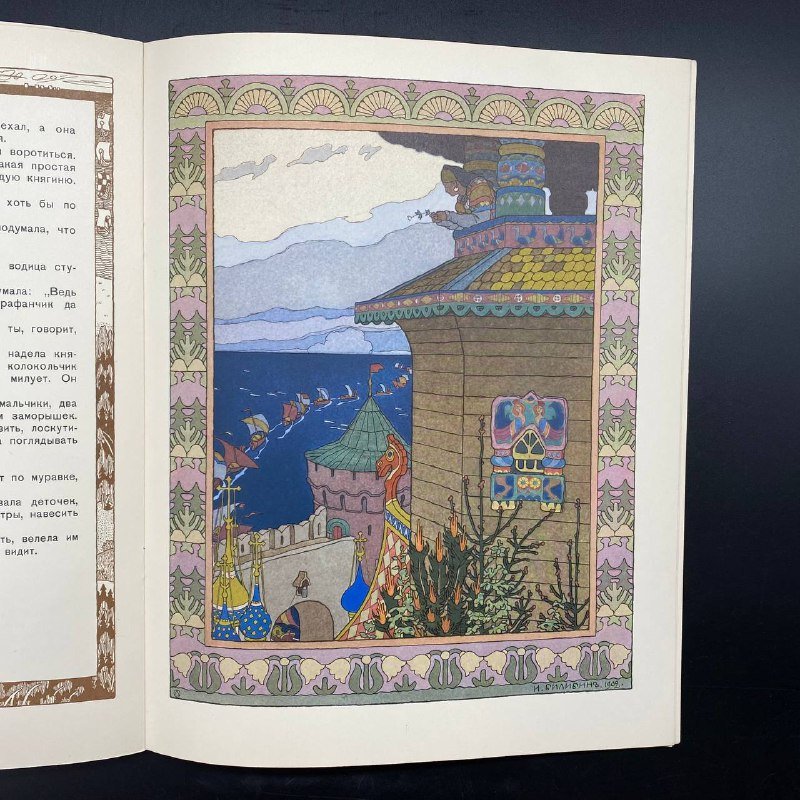 ехал, а она
я.
воротиться.
акая простая
дую княгиню.
хоть бы по
одумала, что
водица сту-
мала: „Ведь
рафанчик да
ты, говорит,
надела кня-
колокольчик
милует. Он
мальчики, два
м заморышек.
вить, лоскути-
а поглядывать
т по муравке,
вала деточек,
тры, навесить
ть, велела им
видит.
И. БИЛИБИНЪ. 1902.